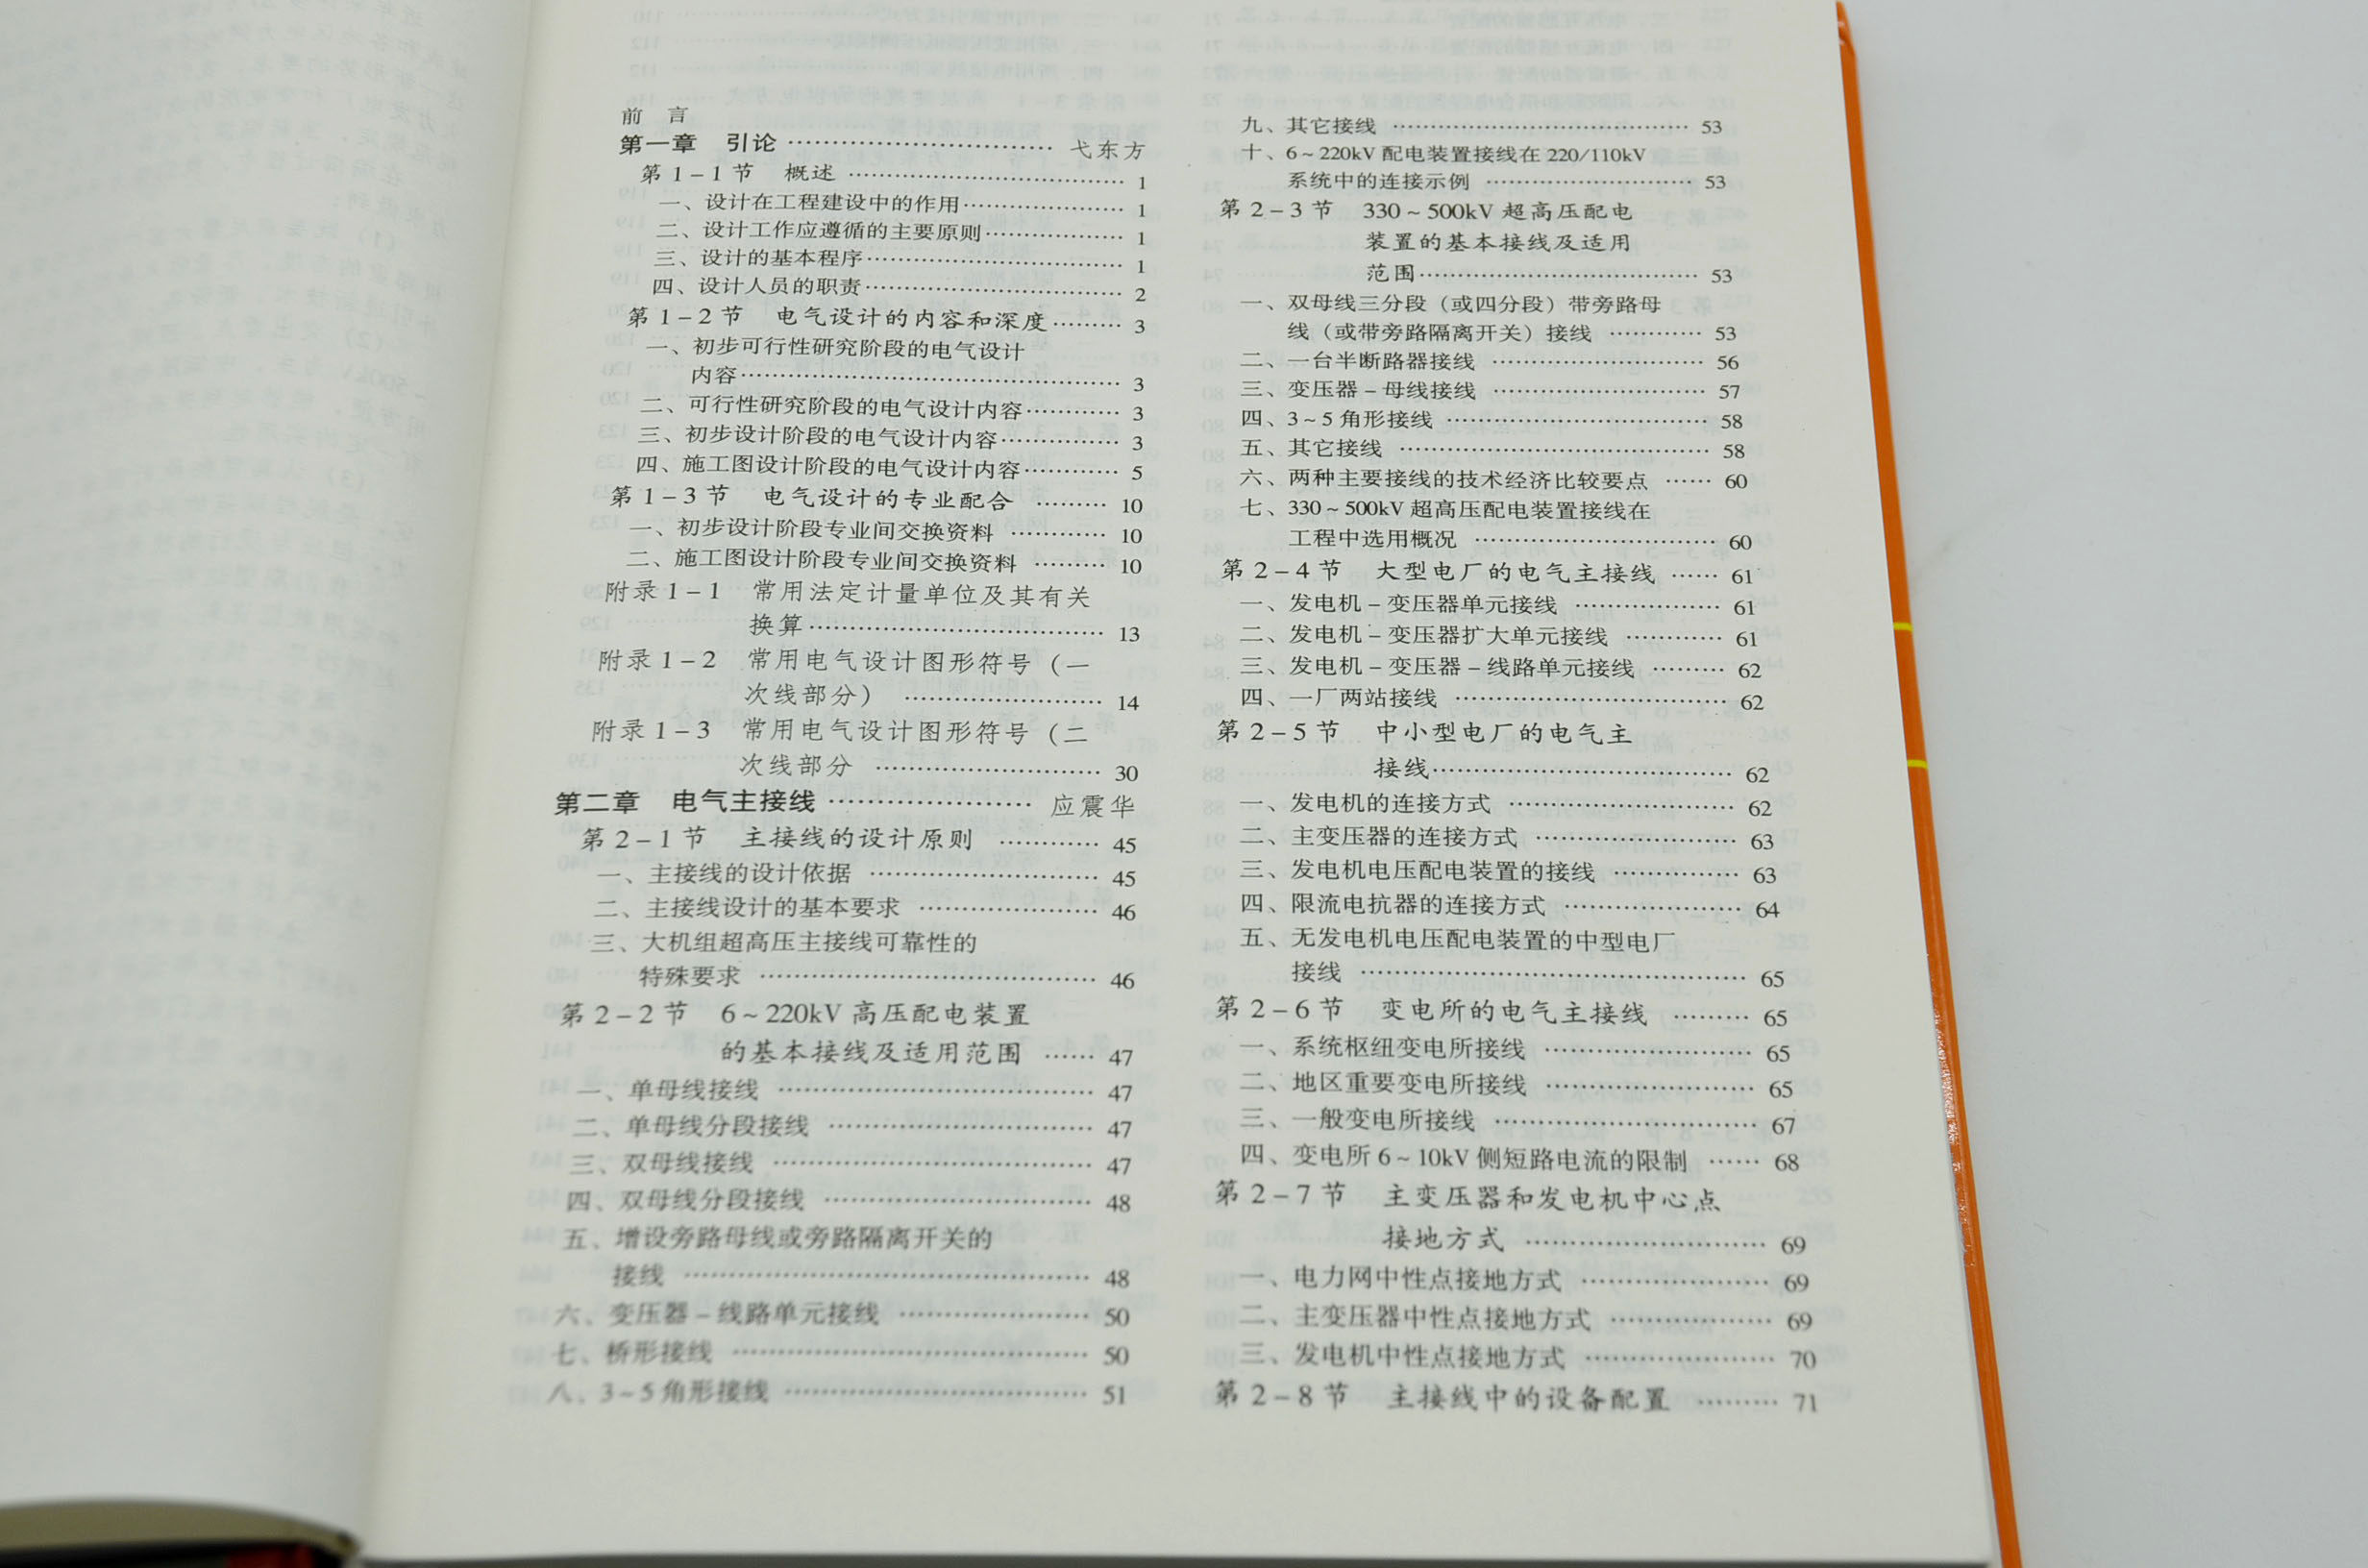 前 言
第一章 引论 …………………………… 弋东方
第 1－1 节 概述 …………………………… 1
一、设计在工程建设中的作用 ………………… 1
二、设计工作应遵循的主要原则 ……………… 1
三、设计的基本程序 …………………………… 1
四、设计人员的职责 …………………………… 2
第 1－2 节 电气设计的内容和深度 ……… 3
一、初步可行性研究阶段的电气设计
内容 ………………………………………… 3
二、可行性研究阶段的电气设计内容 ………… 3
三、初步设计阶段的电气设计内容 …………… 3
四、施工图设计阶段的电气设计内容 ………… 5
第 1－3 节 电气设计的专业配合 ……… 10
一、初步设计阶段专业间交换资料 ………… 10
二、施工图设计阶段专业间交换资料 ……… 10
附录 1－1 常用法定计量单位及其有关
换算 ……………………………… 13
附录 1－2 常用电气设计图形符号（一
次线部分） …………………… 14
附录 1－3 常用电气设计图形符号（二
次线部分 ……………………… 30
第二章 电气主接线 …………………… 应震华
第 2－1 节 主接线的设计原则 ………… 45
一、主接线的设计依据 ……………………… 45
二、主接线设计的基本要求 ………………… 46
三、大机组超高压主接线可靠性的
特殊要求 ………………………………… 46
第 2－2 节 6～220kV 高压配电装置
的基本接线及适用范围 …… 47
一、单母线接线 ……………………………… 47
二、单母线分段接线 ………………………… 47
三、双母线接线 ……………………………… 47
四、双母线分段接线 ………………………… 48
五、增设旁路母线或旁路隔离开关的
接线 ………………………………………… 48
六、变压器－线路单元接线 ………………… 50
七、桥形接线 ………………………………… 50
八、3～5 角形接线 …………………………… 51
九、其它接线 ………………………………… 53
十、6～220kV 配电装置接线在 220/110kV
系统中的连接示例 ……………………… 53
第 2－3 节 330～500kV 超高压配电
装置的基本接线及适用
范围 ……………………………… 53
一、双母线三分段（或四分段）带旁路母
线（或带旁路隔离开关）接线 ………… 53
二、一台半断路器接线 ……………………… 56
三、变压器－母线接线 ……………………… 57
四、3～5 角形接线 …………………………… 58
五、其它接线 ………………………………… 58
六、两种主要接线的技术经济比较要点 …… 60
七、330～500kV 超高压配电装置接线在
工程中选用概况 ………………………… 60
第 2－4 节 大型电厂的电气主接线 …… 61
一、发电机－变压器单元接线 ……………… 61
二、发电机－变压器扩大单元接线 ………… 61
三、发电机－变压器－线路单元接线 ……… 62
四、一厂两站接线 …………………………… 62
第 2－5 节 中小型电厂的电气主
接线 ……………………………… 62
一、发电机的连接方式 ……………………… 62
二、主变压器的连接方式 …………………… 63
三、发电机电压配电装置的接线 …………… 63
四、限流电抗器的连接方式 ………………… 64
五、无发电机电压配电装置的中型电厂
接线 ………………………………………… 65
第 2－6 节 变电所的电气主接线 ……… 65
一、系统枢纽变电所接线 …………………… 65
二、地区重要变电所接线 …………………… 65
三、一般变电所接线 ………………………… 67
四、变电所 6～10kV 侧短路电流的限制 …… 68
第 2－7 节 主变压器和发电机中心点
接地方式 ………………………… 69
一、电力网中性点接地方式 ………………… 69
二、主变压器中性点接地方式 ……………… 69
三、发电机中性点接地方式 ………………… 70
第 2－8 节 主接线中的设备配置 ……… 71